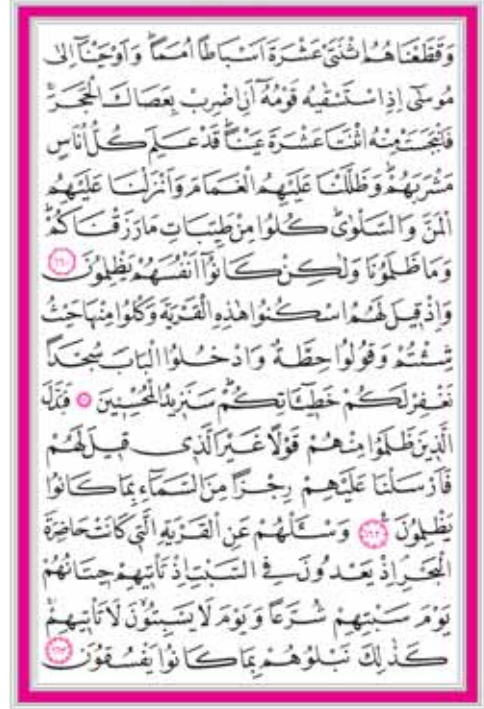 وَقَطَّعْنَاهُمُ اثْنَتَيْ عَشْرَةَ اَسْبَاطًا اُمَمًاۜ وَاَوْحَيْنَٓا اِلٰى
مُوسٰٓى اِذِ اسْتَسْقٰيهُ قَوْمُهُٓ اَنِ اضْرِبْ بِعَصَاكَ الْحَجَرَۚ
فَانْبَجَسَتْ مِنْهُ اثْنَتَا عَشْرَةَ عَيْنًاۜ قَدْ عَلِمَ كُلُّ اُنَاسٍ
مَشْرَبَهُمْۜ وَظَلَّلْنَا عَلَيْهِمُ الْغَمَامَ وَاَنْزَلْنَا عَلَيْهِمُ
الْمَنَّ وَالسَّلْوٰىۜ كُلُوا مِنْ طَيِّبَاتِ مَا رَزَقْنَاكُمْۜ
وَمَا ظَلَمُونَا وَلٰكِنْ كَانُٓوا اَنْفُسَهُمْ يَظْلِمُونَ ﴿١٦٠﴾
وَاِذْ قِيلَ لَهُمُ اسْكُنُوا هٰذِهِ الْقَرْيَةَ وَكُلُوا مِنْهَا حَيْثُ
شِئْتُمْ وَقُولُوا حِطَّةٌ وَادْخُلُوا الْبَابَ سُجَّدًا
نَغْفِرْ لَكُمْ خَطِٓيـَٔاتِكُمْۜ سَنَزِيدُ الْمُحْسِنِينَ ۞ فَبَدَّلَ
الَّذِينَ ظَلَمُوا مِنْهُمْ قَوْلًا غَيْرَ الَّذِي قِيلَ لَهُمْ
فَاَرْسَلْنَا عَلَيْهِمْ رِجْزًا مِنَ السَّمَٓاءِ بِمَا كَانُوا
يَظْلِمُونَ ﴿١٦٢﴾ وَسْـَٔلْهُمْ عَنِ الْقَرْيَةِ الَّتِي كَانَتْ حَاضِرَةَ
الْبَحْرِۢ اِذْ يَعْدُونَ فِي السَّبْتِ اِذْ تَأْتِيهِمْ حِيتَانُهُمْ
يَوْمَ سَبْتِهِمْ شُرَّعًا وَيَوْمَ لَا يَسْبِتُونَ لَا تَأْتِيهِمْۚ
كَذٰلِكَ نَبْلُوهُمْ بِمَا كَانُوا يَفْسُقُونَ ﴿١٦٣﴾